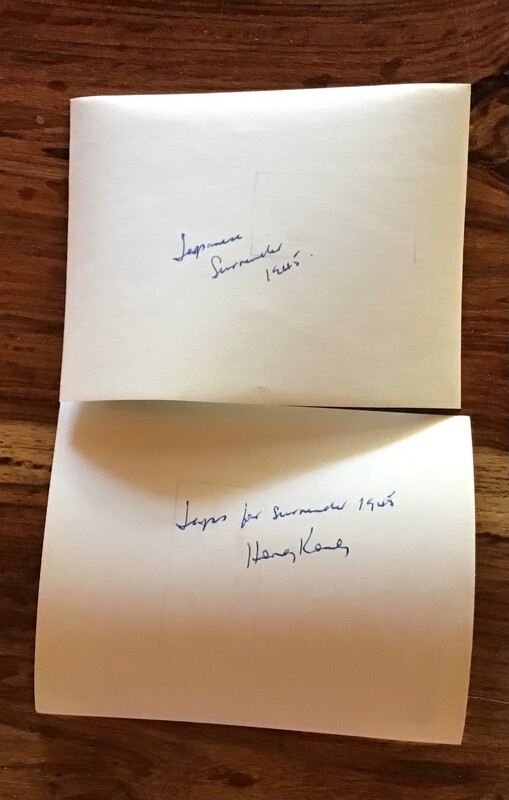 Japanese
Surrender
1945.
Japs for surrender 1945
Hong Kong